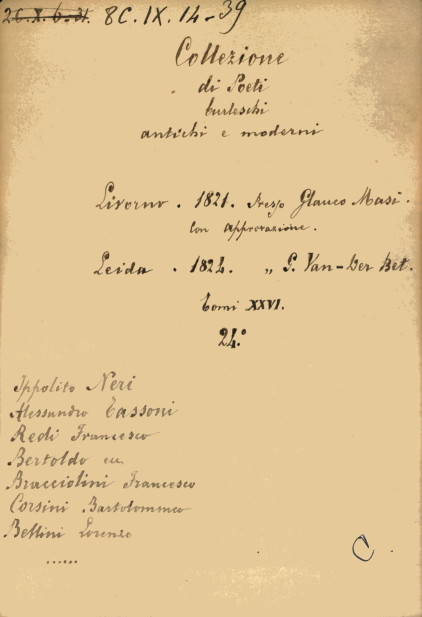 2C.X.6.31. 8C.IX.14-39
Collezione
di Poeti
burleschi
antichi e moderni
Livorno. 1821. Presso Glauco Masi.
con approvazione.
Leida. 1824. „ G. Van-Der Bet.
Tomi XXVI.
24.º
Ippolito Neri
Alessandro Tassoni
Redi Francesco
Bertoldo ecc.
Bracciolini Francesco
Corsini Bartolommeo
Bellini Lorenzo
......
C